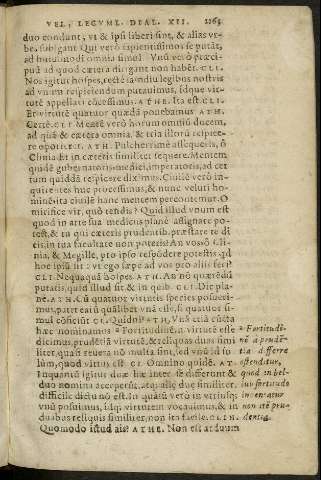 VEL, LEGVML. DIAL. XII. 1163
duo condunt, vt & ipsi liberi sint, & alias vr-
be, subigant Qui verò sapientissimos se putãt,
ad huiusmodi omnia simul Vnũ verò præci-
puũ ad quod cætera dirigant non habẽt. CLI.
Nos igitur hospes, rectè iamdiu legibus nostris
ad vnum respiciendum putauimus, idque virtu-
tẽ appellari cõcessimus. ATHE. Ita est. CLI.
Et virtutẽ quatuor quædã ponebamus ATH.
Certè. CLI Mentẽ verò horum omniũ ducem,
ad quã & cætera omnia, & tria illorũ respice-
re oportet. ATH. Pulcherrimè assequeris, ô
Clinia Et in cæteris similiter sequere. Mentem
quidẽ gubernatoris, medici, imperatoris, ad cer
tum quiddã respicere diximus. Ciuilẽ verò in-
quirentes huc processimus, & nunc veluti ho-
minẽ ita ciuilẽ hanc mentem percontemur. O
mirifice vir, quò tendis? Quid illud vnum est
quod in arte sua medicus planè assignare po-
test, & tu qui cæteris prudentib. præstare te di
cis, in tua facultate non poteris? An vos ô Cli-
nia, & Megille, pro ipso respõdere potestis, qd
hoc ipsũ sit: vt ego sæpe ad vos pro aliis feci?
CLI Nequaquã hospes. ATH. An nõ quærẽdũ
putatis, quid illud sit & in quib. CLI. Dic pla-
nè. ATH. Cũ quatuor virtutis species posueri-
mus, patet earũ quãlibet vnã esse, si quatuor si-
mul cõficiũt CLI. Quidni? ATH, Vnũ etiã cũcta
hæc nominamus Fortitudinẽ. n. virtutẽ esse
dicimus, prudẽtiã virtutẽ, & reliquas duas simi
liter, quasi reuera nõ multa sint, sed vnũ id so
lùm, quod virtus est CLI Omnino quidẽ. AT
Inquantũ igitur duæ hæ inter se differunt &
duo nomina acceperũt, atq; aliæ duæ similiter,
difficile dictu nõ est. In quãtũ verò in virtutẽ
vnũ posuimus, idq; virtutem vocauimus, & in
duabus reliquis similiter, non ita facile. CLIN.
Quomodo istud ais? ATHE. Non est arduum
a Fortitudi-
nẽ à prudẽ-
tia differre
ostenditur,
quod in bel-
uis fortitudo
inueniatur
non itẽ pru-
dentia.